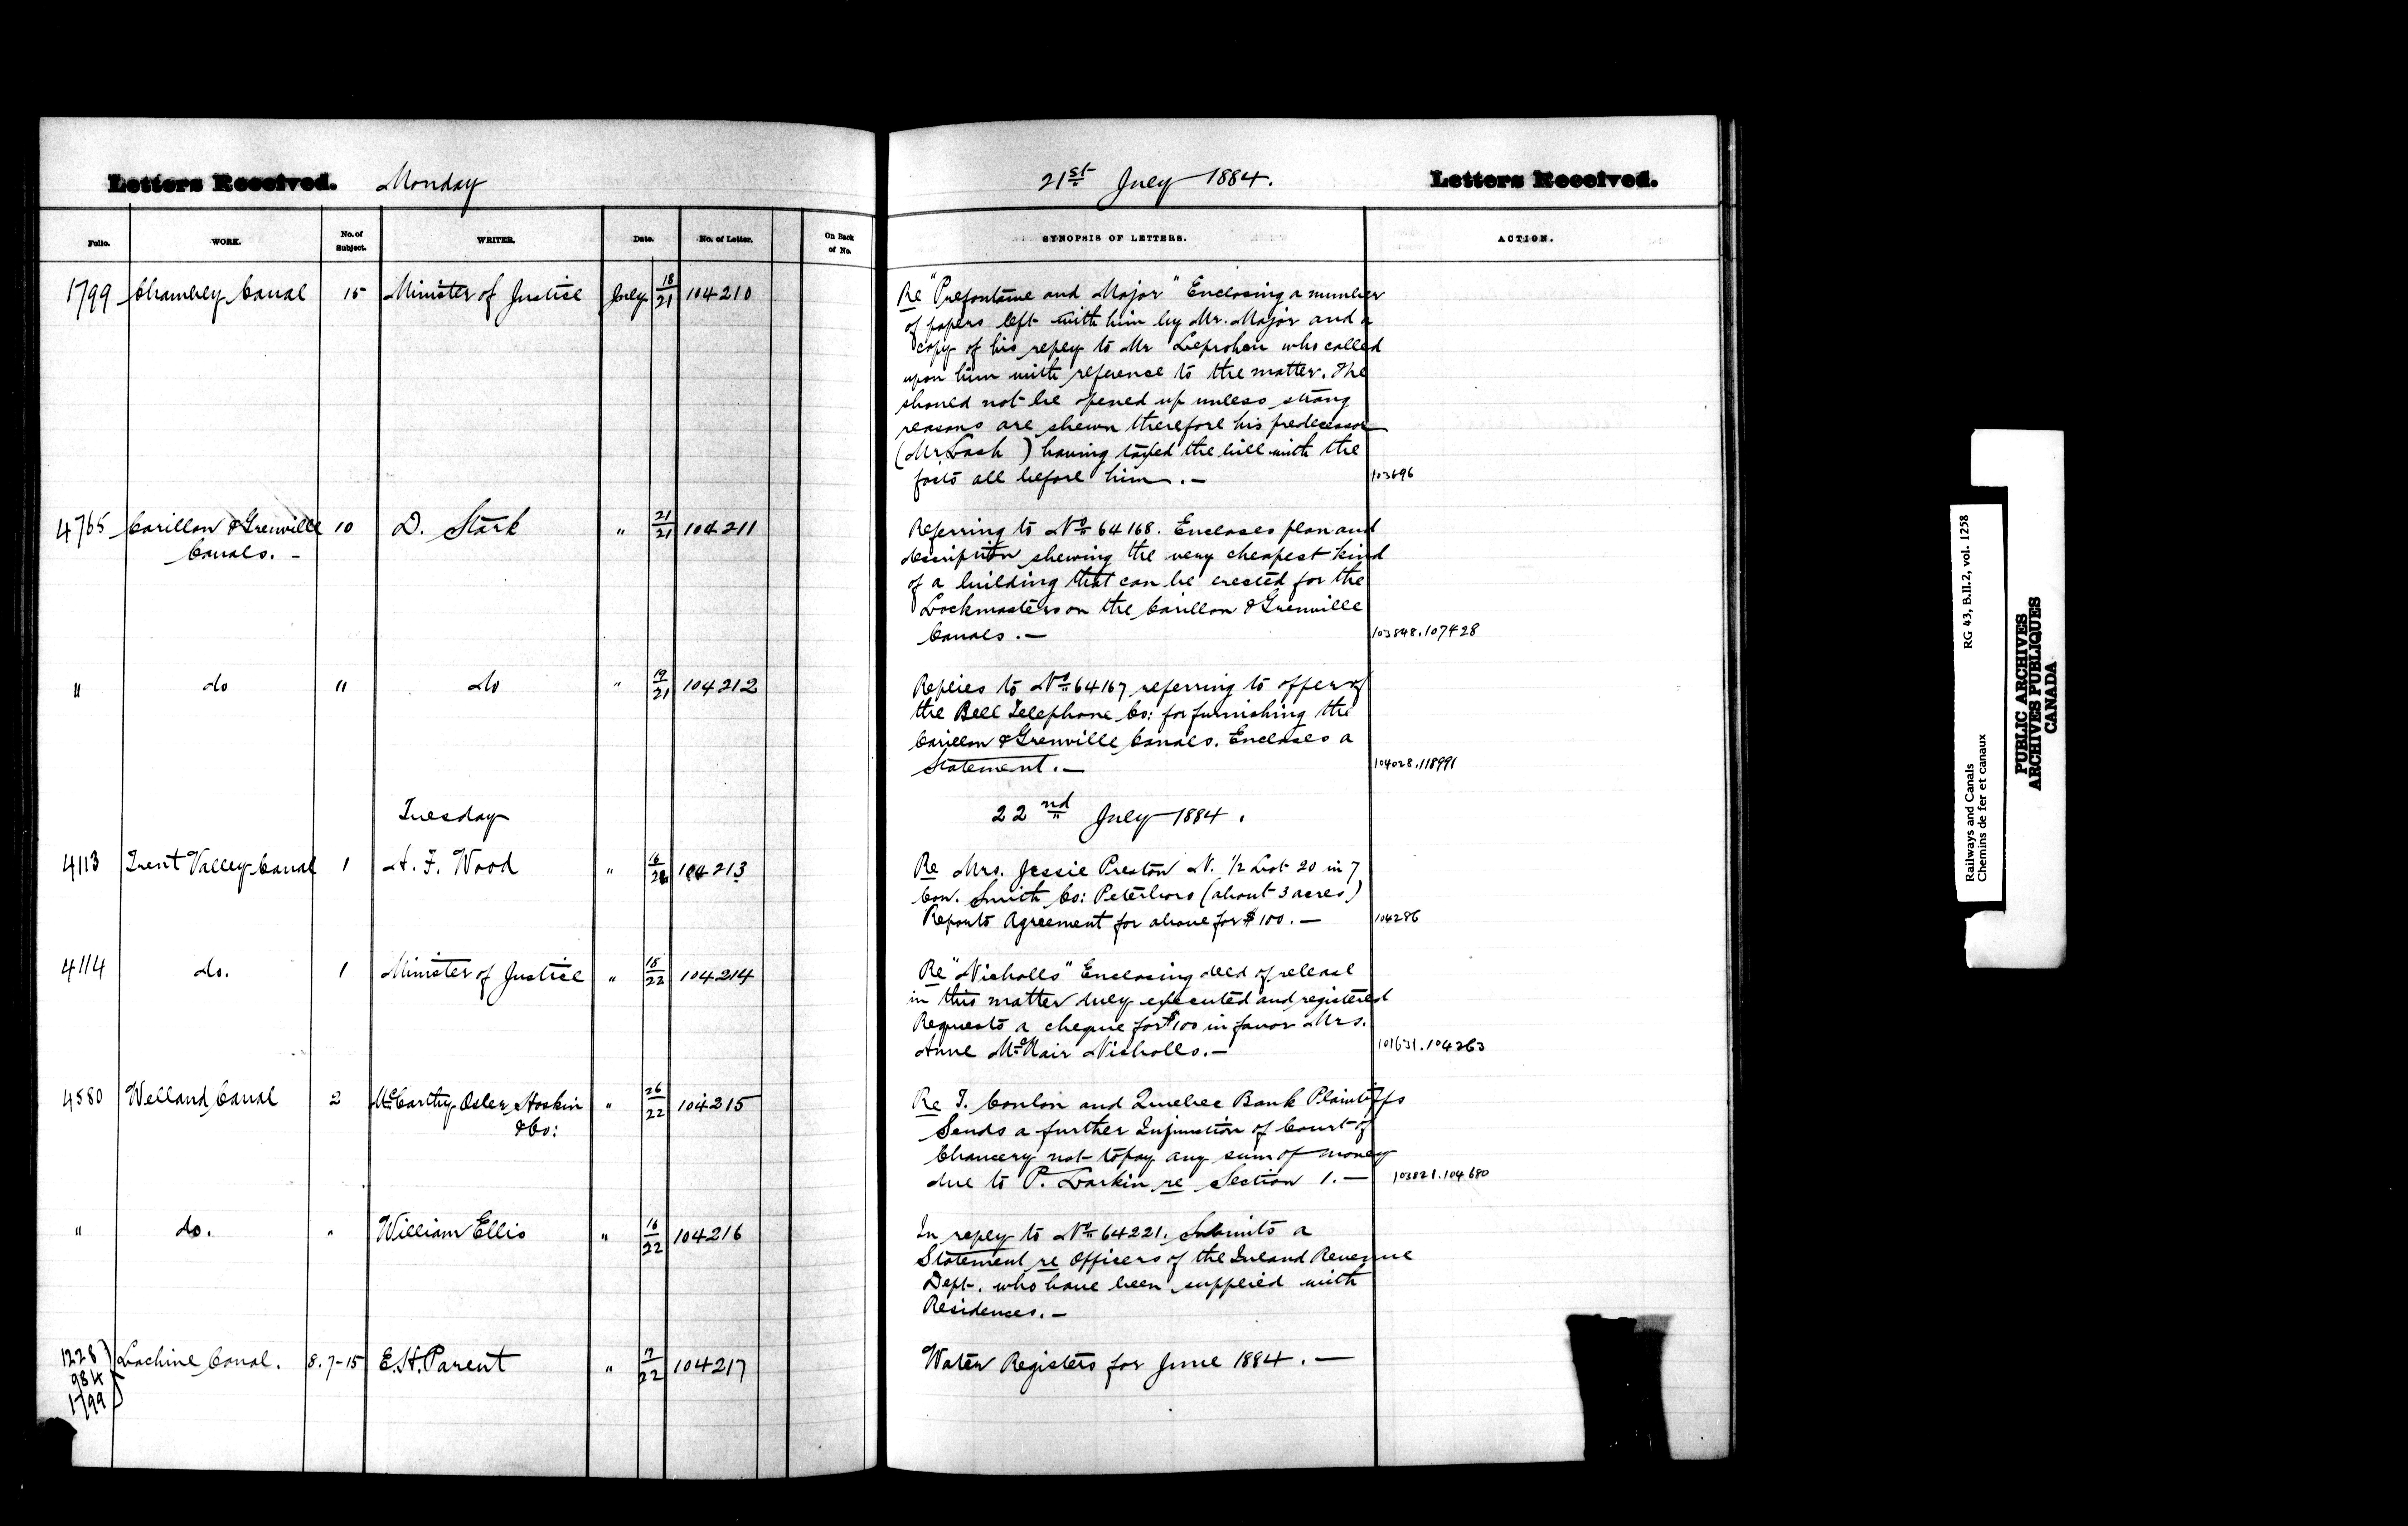 Letters Received. Monday
21st July 1884. Letters Received.
Folio. WORK. No. of Subject. WRITER. Date. No. of Letter. On Back of No. SYNOPSIS OF LETTERS. ACTION.
1799 Chambly Canal 15 Minister of Justice July 18/21 104210
Re "Prefontaine and Major" Enclosing a number
of papers left with him by Mr. Major and a
copy of his reply to Mr Leprohon who called
upon him with reference to the matter. The
should not be opened up unless strong
reasons are shewn therefore his predecessor
(Mr Lash ) having taxed the bill with the
facts all before him. — 103696
4765 Carillon & Grenville 10 D. Stark " 21/21 104211
Canals. —
Referring to No 64168. Encloses plan and
description shewing the very cheapest kind
of a building that can be erected for the
Lockmasters on the Carillon & Grenville
Canals. — 103848.107428
" do " do " 19/21 104212
Replies to No 64167 referring to offer of
the Bell Telephone Co: for furnishing the
Carillon & Grenville Canals. Encloses a
Statement. — 104028.118991
Tuesday 22nd July 1884.
4113 Trent Valley Canal 1 A. F. Wood " 16/22 104213
Re Mrs. Jessie Preston N. 1/2 Lot 20 in 7
Con. Smith Co: Peterboro (about 3 acres)
Reports Agreement for above for $100. — 104286
4114 do. 1 Minister of Justice " 18/22 104214
Re "Nicholls" Enclosing deed of release
in this matter duly executed and registered
Requests a cheque for $100 in favor Mrs.
Anne McNair Nicholls. — 101631.104263
4580 Welland Canal 2 McCarthy Osler Hoskin " 26/22 104215
& Co:
Re T. Conlon and Quebec Bank Plaintiffs
Sends a further Injunction of Court of
Chancery not to pay any sum of money
due to P. Larkin re Section 1. — 103821.104680
" do. " William Ellis " 16/22 104216
In reply to No 64221. Submits a
Statement re Officers of the Inland Revenue
Dept. who have been supplied with
Residences. —
1228 Lachine Canal. 8.7-15 E.H. Parent " 7/22 104217
984
1799
Water Registers for June 1884. —
Railways and Canals RG 43, B.II.2, vol. 1258
Chemins de fer et canaux
PUBLIC ARCHIVES
ARCHIVES PUBLIQUES
CANADA